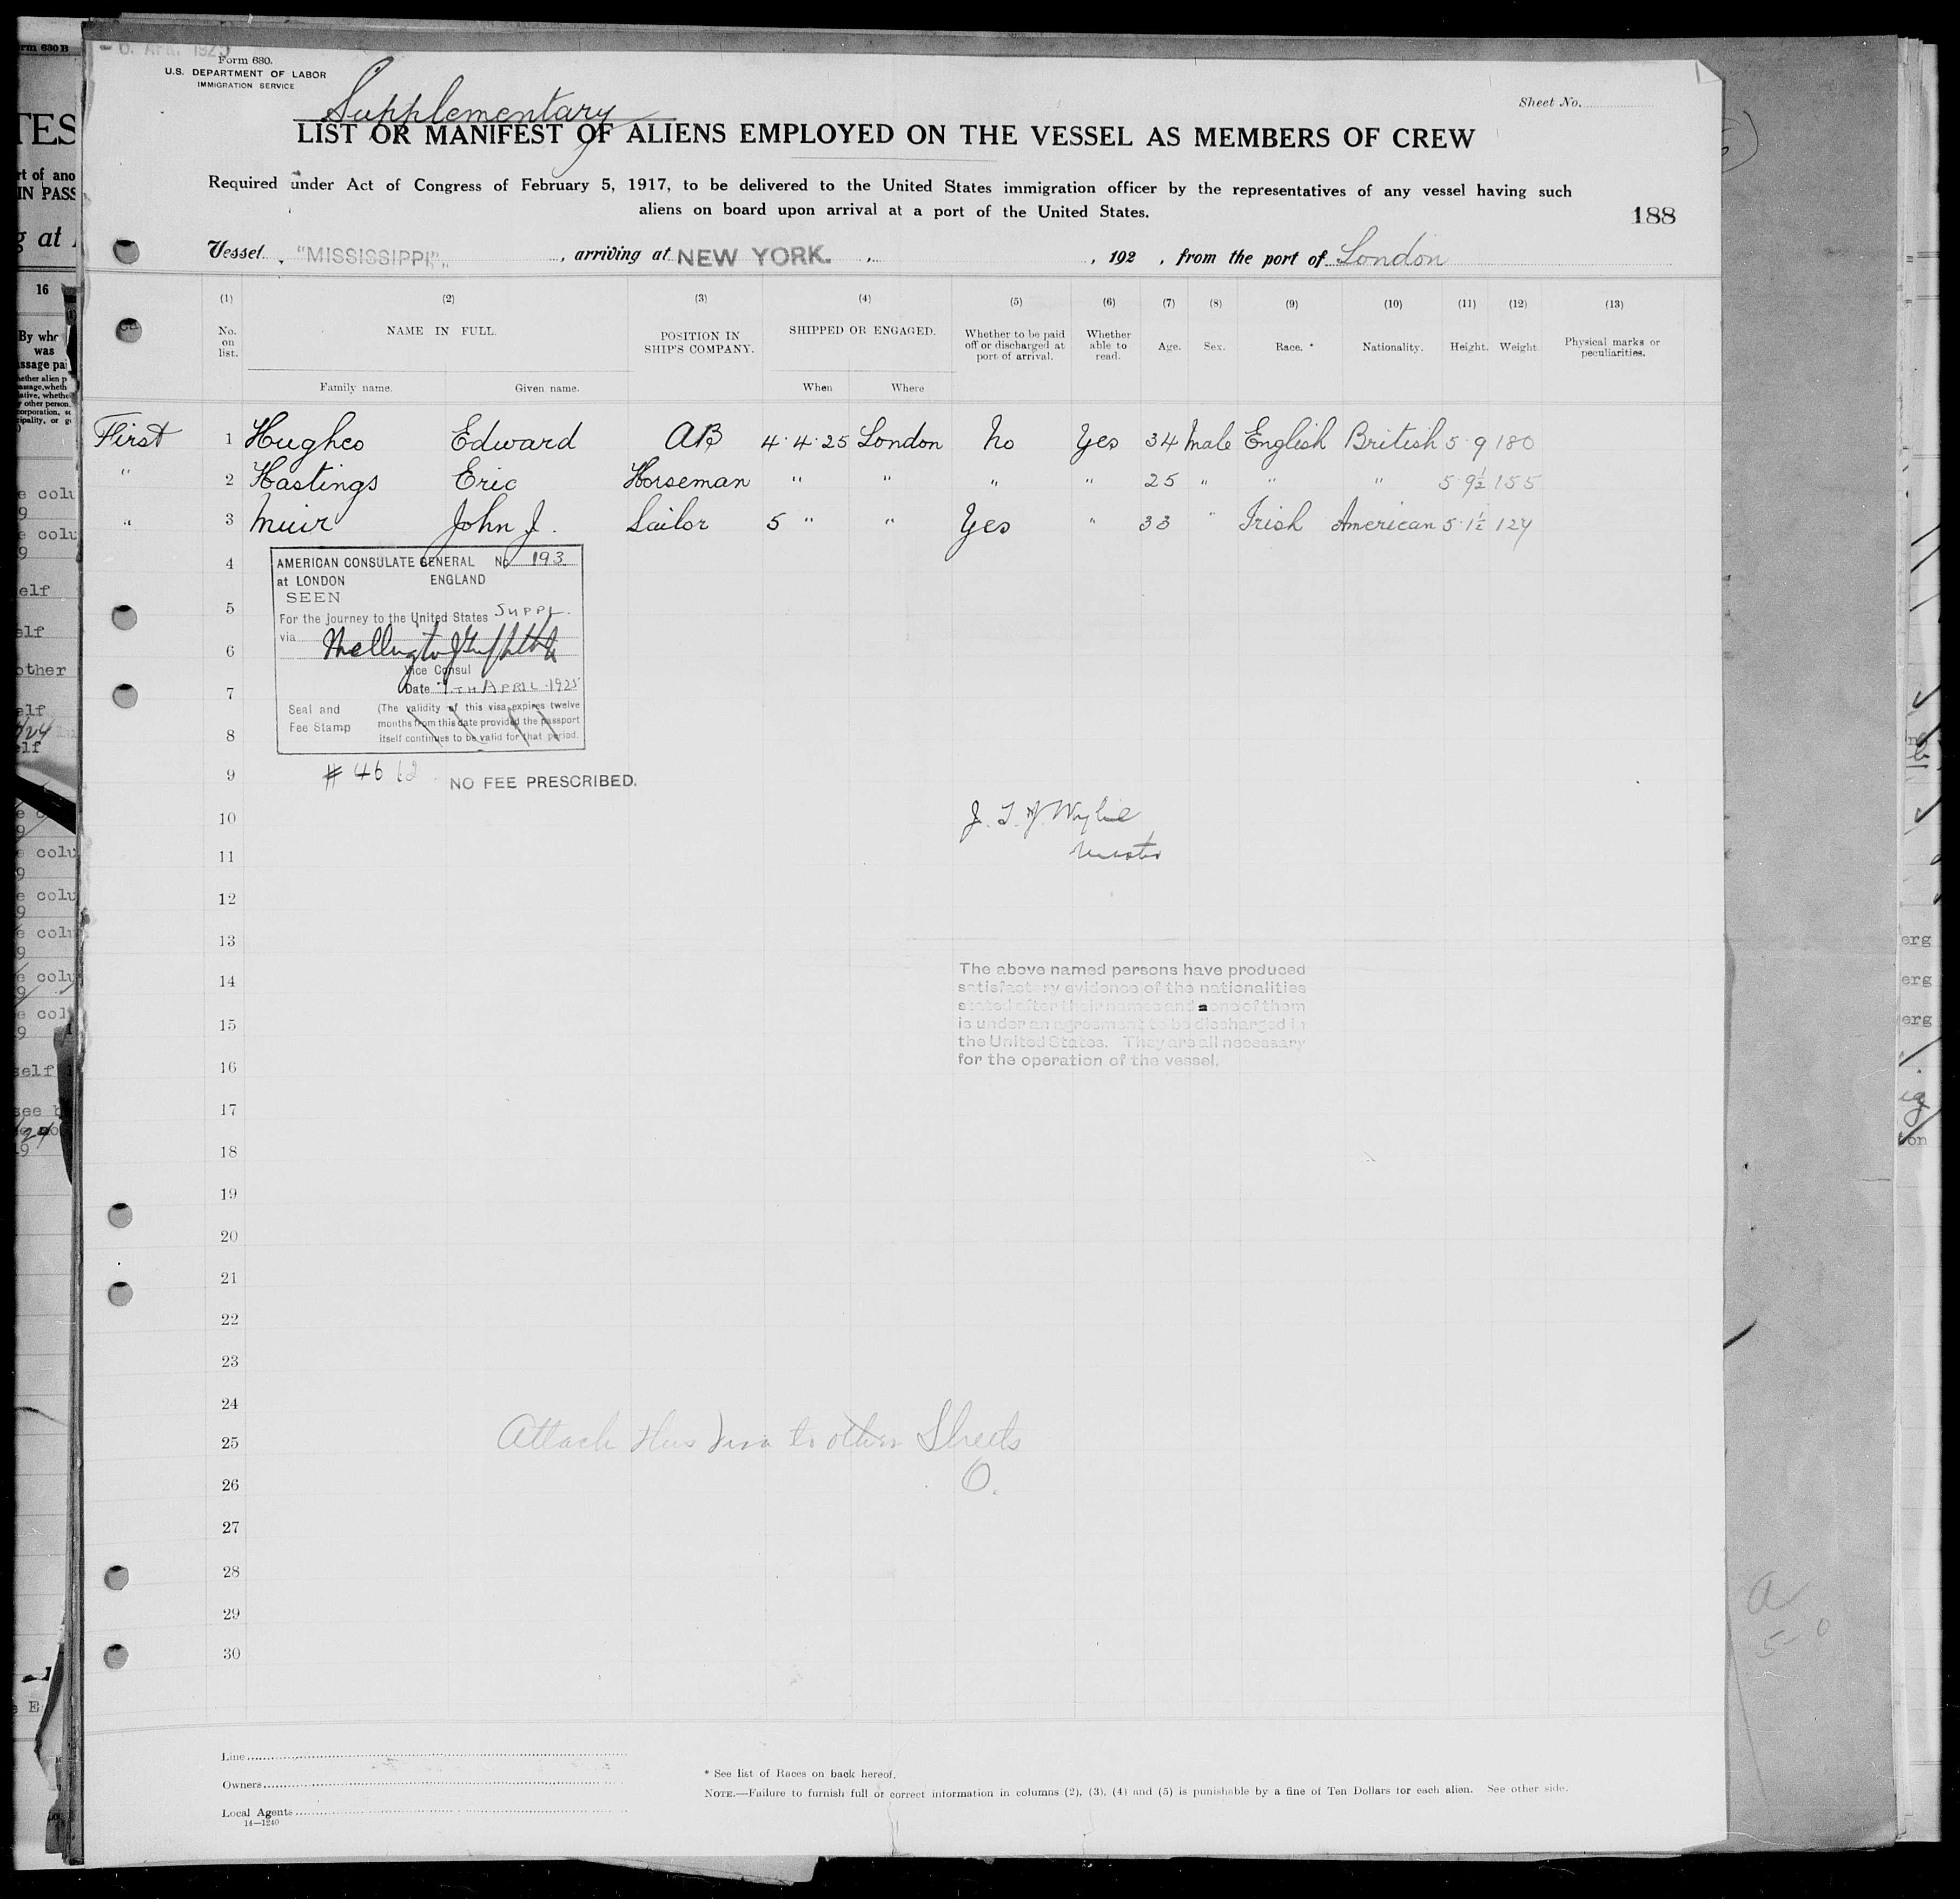 6. APR. 1925
Form 630.
U.S. DEPARTMENT OF LABOR
IMMIGRATION SERVICE
Supplementary
Sheet No.
LIST OR MANIFEST OF ALIENS EMPLOYED ON THE VESSEL AS MEMBERS OF CREW
Required under Act of Congress of February 5, 1917, to be delivered to the United States immigration officer by the representatives of any vessel having such
aliens on board upon arrival at a port of the United States.
188
Vessel "MISSISSIPPI", arriving at NEW YORK. , 192 , from the port of London
(1) (2) (3) (4) (5) (6) (7) (8) (9) (10) (11) (12) (13)
No. on list. NAME IN FULL. POSITION IN SHIP'S COMPANY. SHIPPED OR ENGAGED. Whether to be paid off or discharged at port of arrival. Whether able to read. Age. Sex. Race. * Nationality. Height. Weight. Physical marks or peculiarities.
Family name. Given name. When Where
First 1 Hughes Edward AB 4.4.25 London No Yes 34 Male English British 5.9 180
" 2 Hastings Eric Horseman " " " " 25 " " " 5.9½ 155
" 3 Muir John J. Sailor 5 " " Yes " 33 " Irish American 5.1½ 124
4
AMERICAN CONSULATE GENERAL No 193
at LONDON ENGLAND
SEEN
5
For the journey to the United States SUPPL.
via
6
Vice Consul
7
Date 7TH APRIL 1925
Seal and Fee Stamp
(The validity of this visa expires twelve
months from this date provided the passport
itself continues to be valid for that period.
8
9
# 4612 NO FEE PRESCRIBED.
10 J. T. H. Wylie
11 Master
12
13
The above named persons have produced
14
satisfactory evidence of the nationalities
stated after their names and none of them
15
is under an agreement to be discharged in
the United States. They are all necessary
16
for the operation of the vessel.
17
18
19
20
21
22
23
24
25 Attach this visa to other Sheets
26 O.
27
28
29
30
Line
Owners
Local Agents
14—1240
* See list of Races on back hereof.
NOTE.—Failure to furnish full or correct information in columns (2), (3), (4) and (5) is punishable by a fine of Ten Dollars for each alien. See other side.